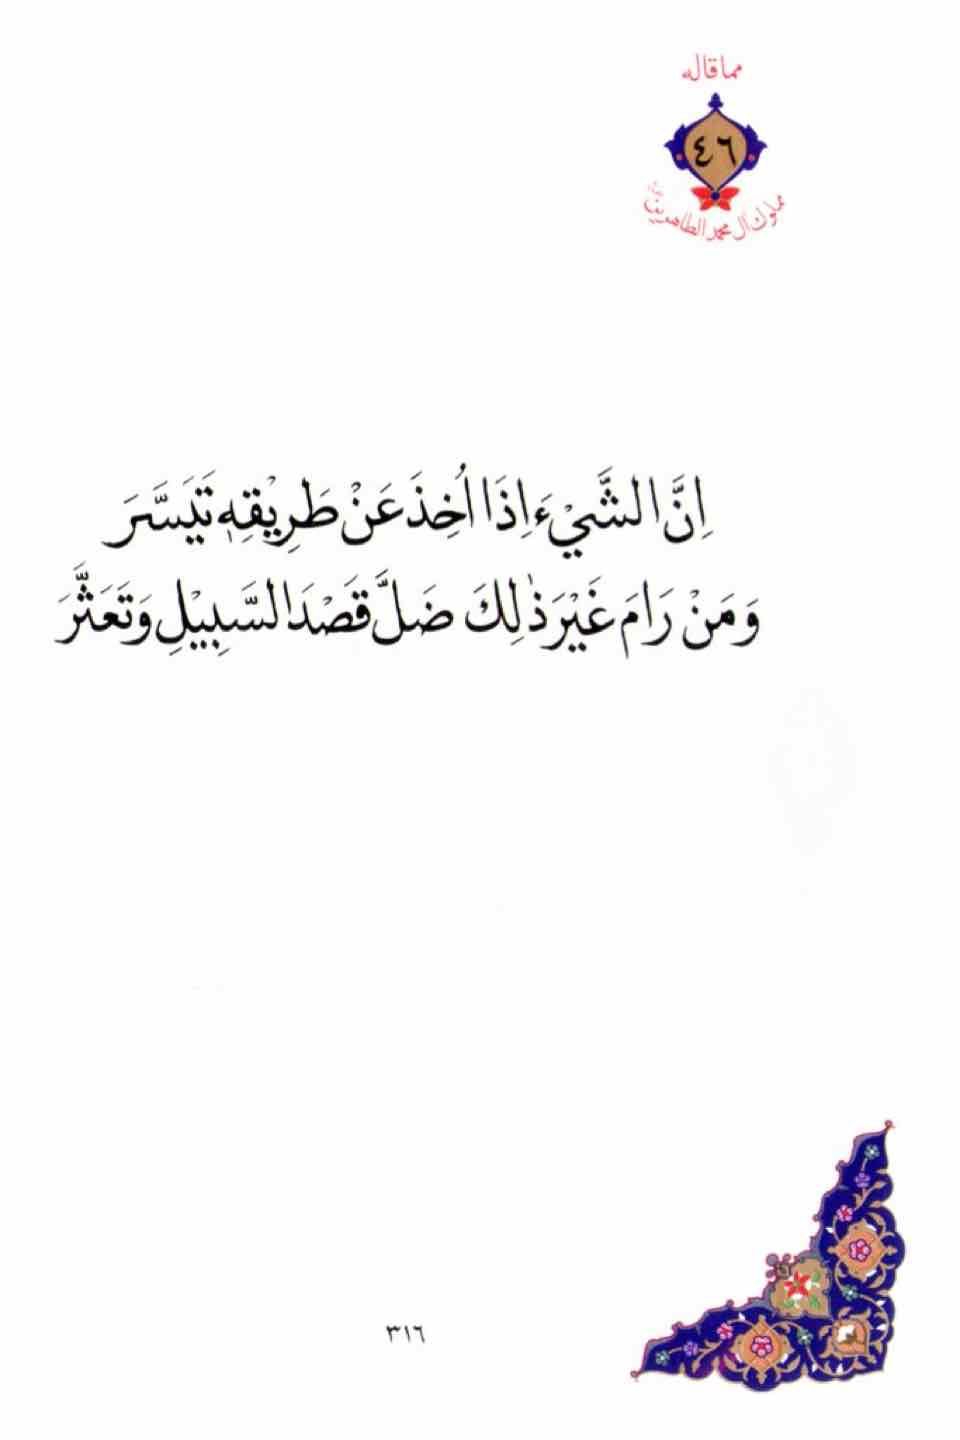 مما قاله
٤٦
مملوك آل محمد الطاهرين
اِنَّ الشَّيْءَ اِذَا اُخِذَ عَنْ طَرِيْقِهٖ تَيَسَّرَ
وَمَنْ رَامَ غَيْرَ ذٰلِكَ ضَلَّ قَصْدَ السَّبِيْلِ وَتَعَثَّرَ
٣١٦